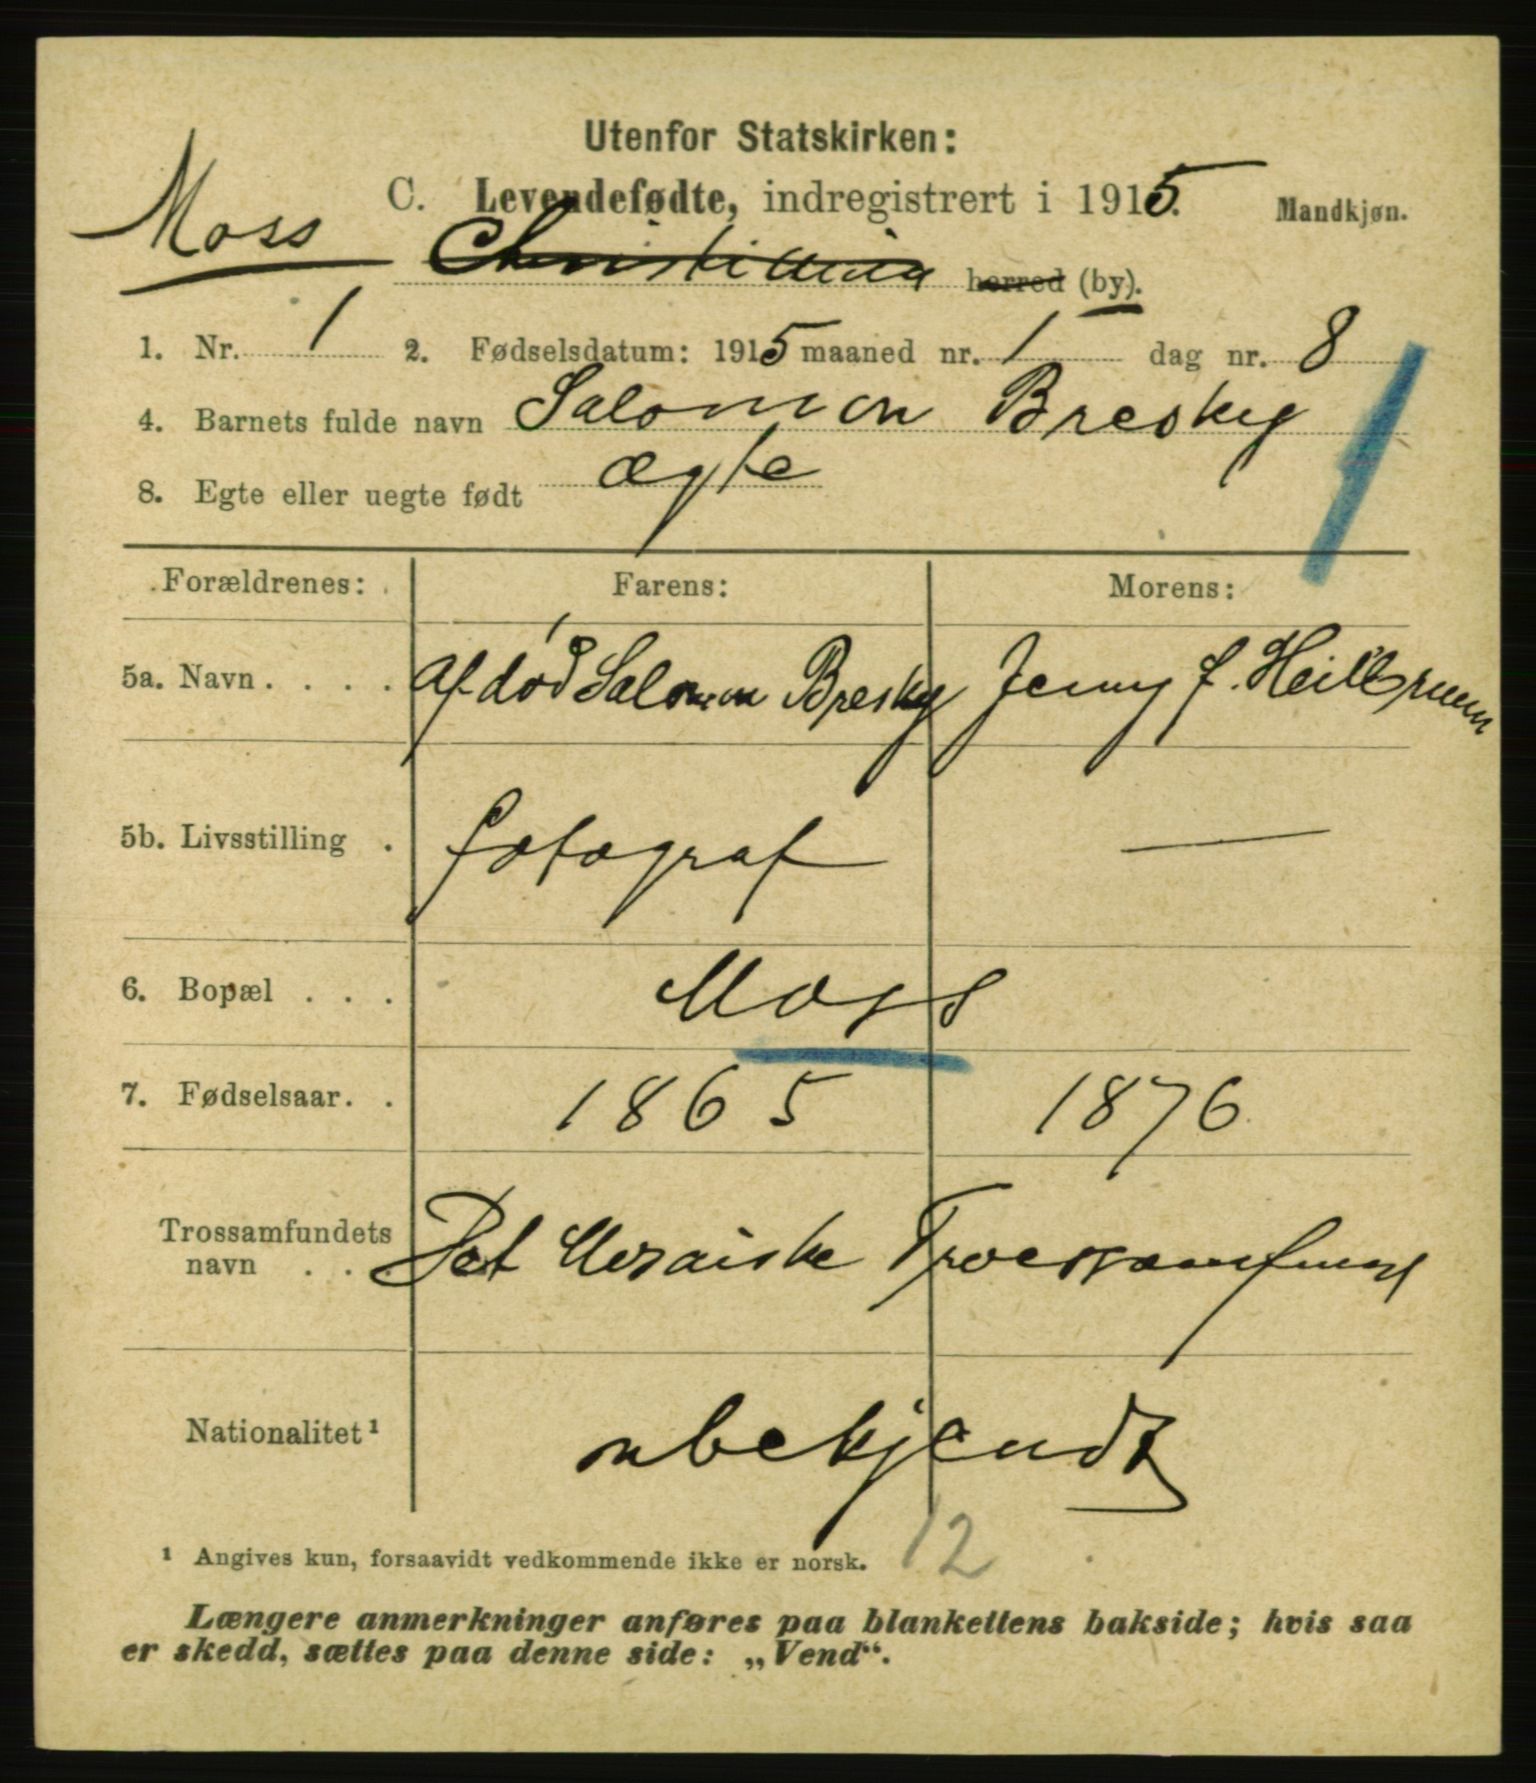 Utenfor Statskirken:
C. Levendefødte, indregistrert i 1915. Mandkjøn.
Moss Christiania herred (by).
1. Nr. 1 2. Fødselsdatum: 1915 maaned nr. 1 dag nr. 8
4. Barnets fulde navn Salomon Bresky
8. Egte eller uegte født ægte
Forældrenes: Farens: Morens:
5a. Navn . . . . Afdød Salomon Bresky Jenny f. Heilbrunn
5b. Livsstilling . fotograf —
6. Bopæl . . . Moss
7. Fødselsaar. . 1865 1876
Trossamfundets
navn . . . Det Mosaiske Troessamfund
Nationalitet¹ ubekjendt
¹ Angives kun, forsaavidt vedkommende ikke er norsk. 12
Længere anmerkninger anføres paa blankettens bakside; hvis saa
er skedd, sættes paa denne side: „Vend“.